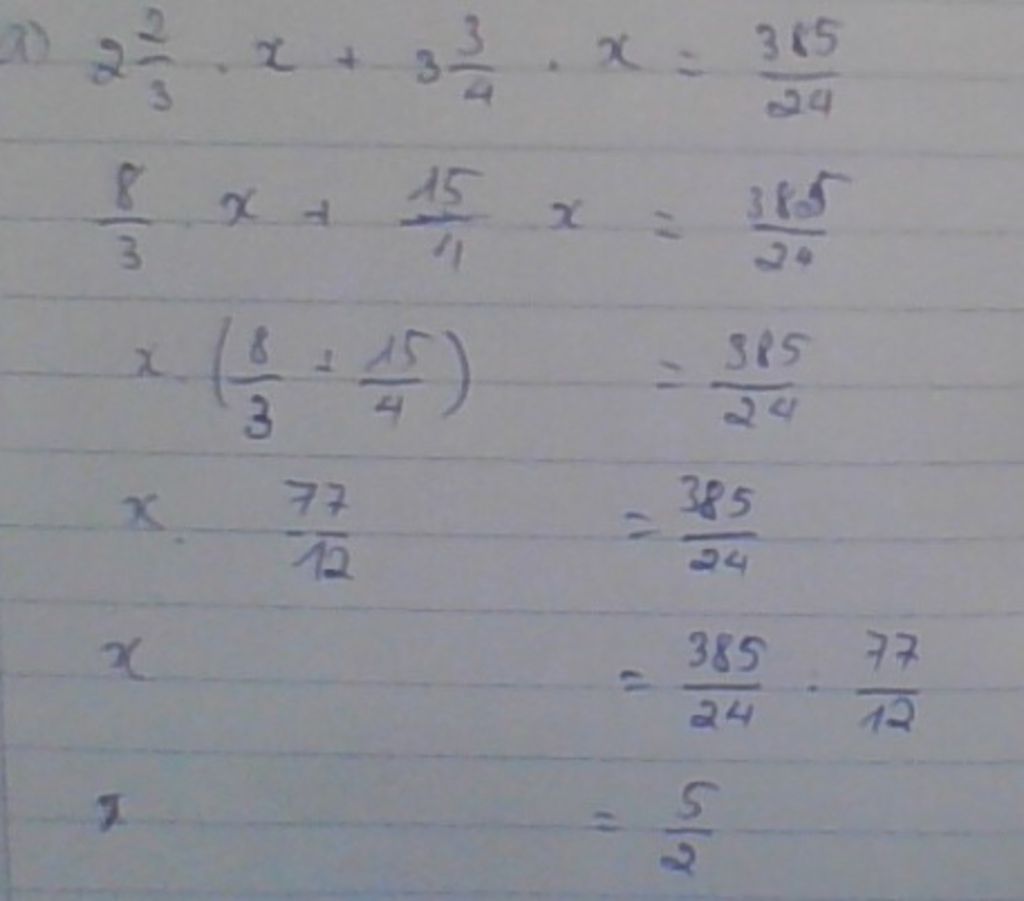 a) 2 2/3 . x + 3 3/4 . x = 385/24
8/3 . x + 15/4 x = 385/24
x . (8/3 + 15/4) = 385/24
x . 77/12 = 385/24
x = 385/24 . 77/12
x = 5/2